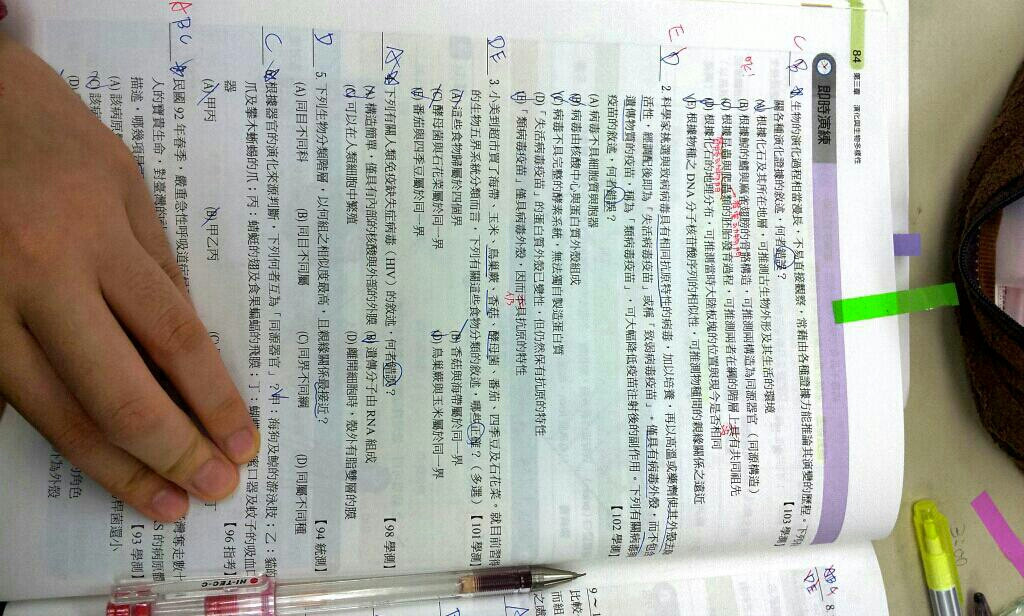 84 第三章 演化與生物多樣性
即時演練
1. 生物的演化過程相當漫長，不易直接觀察，常藉由各種證據方能推論其演變的歷程。下列有
關各種演化證據的敘述，何者錯誤？【103學測】
(A) 根據化石及其所在地層，可推測古生物外形及其生活的環境
(B) 根據鯨的鰭與麻雀翅膀的骨骼構造，可推測兩構造為同源器官（同源構造）
(C) 根據昆蟲與爬蟲類的胚胎發育過程，可推測兩者在綱的階層上具有共同祖先
(D) 根據化石的地理分布，可推測當時大陸板塊的位置與現今是否相同
(E) 根據物種之 DNA 分子核苷酸序列的相似性，可推測物種間的親緣關係之遠近
E D
2. 科學家挑選與致病病毒具有相同抗原特性的病毒，加以培養，再以高溫或藥劑使其外殼去
活性，經調配後即為「失活病毒疫苗」或稱「致弱病毒疫苗」。僅具有病毒外殼，而不包含
遺傳物質的疫苗，稱為「類病毒疫苗」，可大幅降低疫苗注射後的副作用。下列有關病毒與
疫苗的敘述，何者錯誤？【102學測】
(A) 病毒不具細胞質與胞器
(B) 病毒由核酸中心與蛋白質外殼組成
(C) 病毒不具完整的酵素系統，無法獨自製造蛋白質
(D) 「失活病毒疫苗」的蛋白質外殼已變性，但仍然保有抗原的特性
(E) 「類病毒疫苗」僅具病毒外殼，因而不具抗原的特性
DE
3. 小美到超市買了海帶、玉米、鳥巢蕨、香菇、酵母菌、番茄、四季豆及石花菜。就目前習用
的生物五界系統分類而言，下列有關這些食物分類的敘述，哪些正確？（多選）【101學測】
(A) 這些食物歸屬於四個界
(B) 香菇與海帶屬於同一界
(C) 酵母菌與石花菜屬於同一界
(D) 鳥巢蕨與玉米屬於同一界
(E) 番茄與四季豆屬於同一界
A
4. 下列有關人類免疫缺失症病毒（HIV）的敘述，何者錯誤？【98學測】
(A) 構造簡單，僅具有內部的核酸與外部的外膜
(B) 遺傳分子由 RNA 組成
(C) 可以在人類細胞中繁殖
(D) 離開細胞時，殼外有脂雙層的膜
D
5. 下列生物分類階層，以何組之相似度最高，且親緣關係最接近？【94統測】
(A) 同目不同科
(B) 同目不同屬
(C) 同界不同綱
(D) 同屬不同種
C
6. 根據器官的演化來源判斷，下列何者互為「同源器官」？甲：海狗及鯨的游泳肢；乙：貓的
爪及攀木蜥蜴的爪；丙：蜻蜓的翅及食果蝙蝠的飛膜；丁：蝴蝶
蜜口器及蚊子的吸血口
器【96指考】
(A) 甲丙
(B) 甲乙丙
丁
ABC
民國 92 年春季，嚴重急性呼吸道症
灣奪走數十
人的寶貴生命，對臺灣的社
S 的病原體
描述，哪幾項是
【93學測】
(A) 該病原
桿菌還小
(C) 該病
的角色
(D)
為外殼
HI-TEC-C
8.
9～
比較